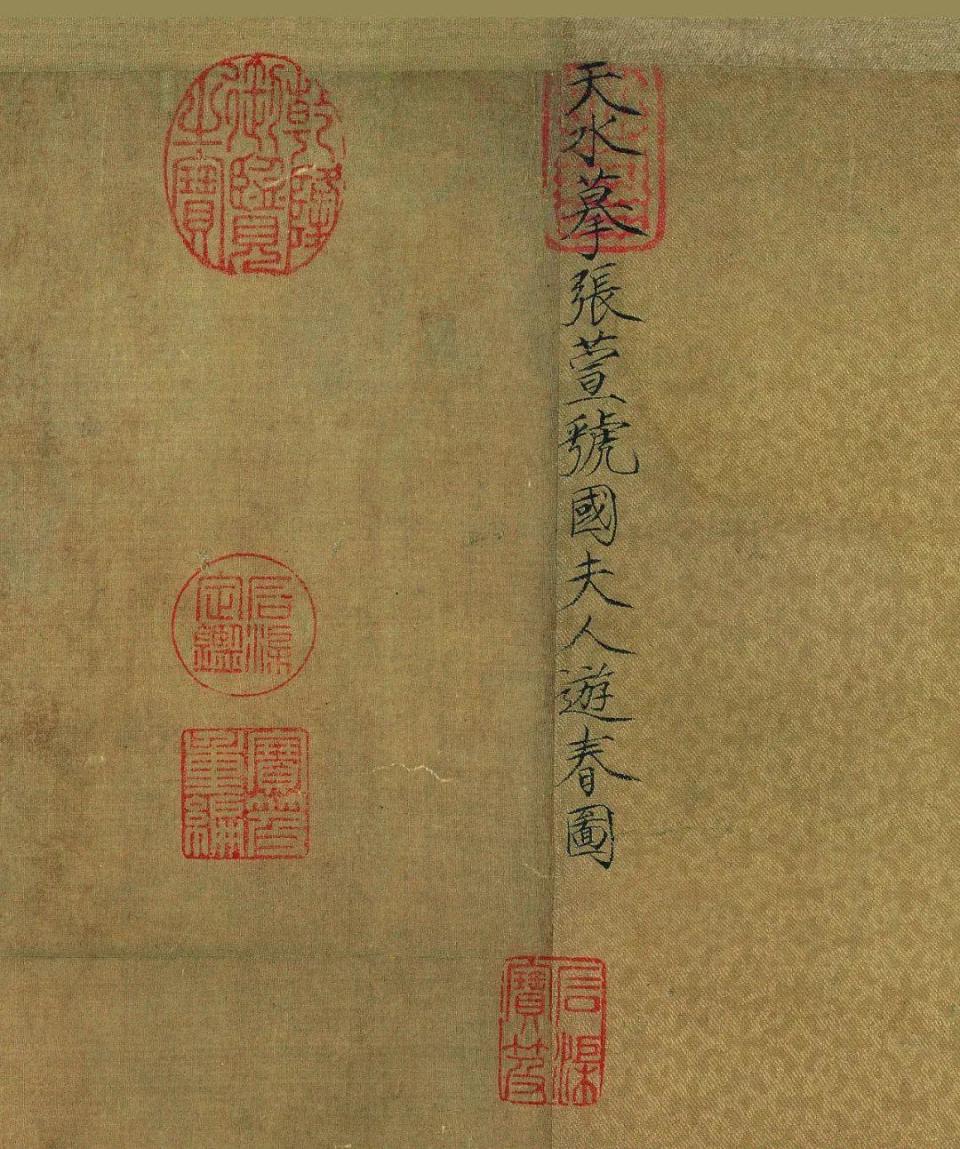 天水摹張萱虢國夫人遊春圖
石渠
寶笈
乾隆
御覽
之寶
石渠
定鑑
寶笈
重編